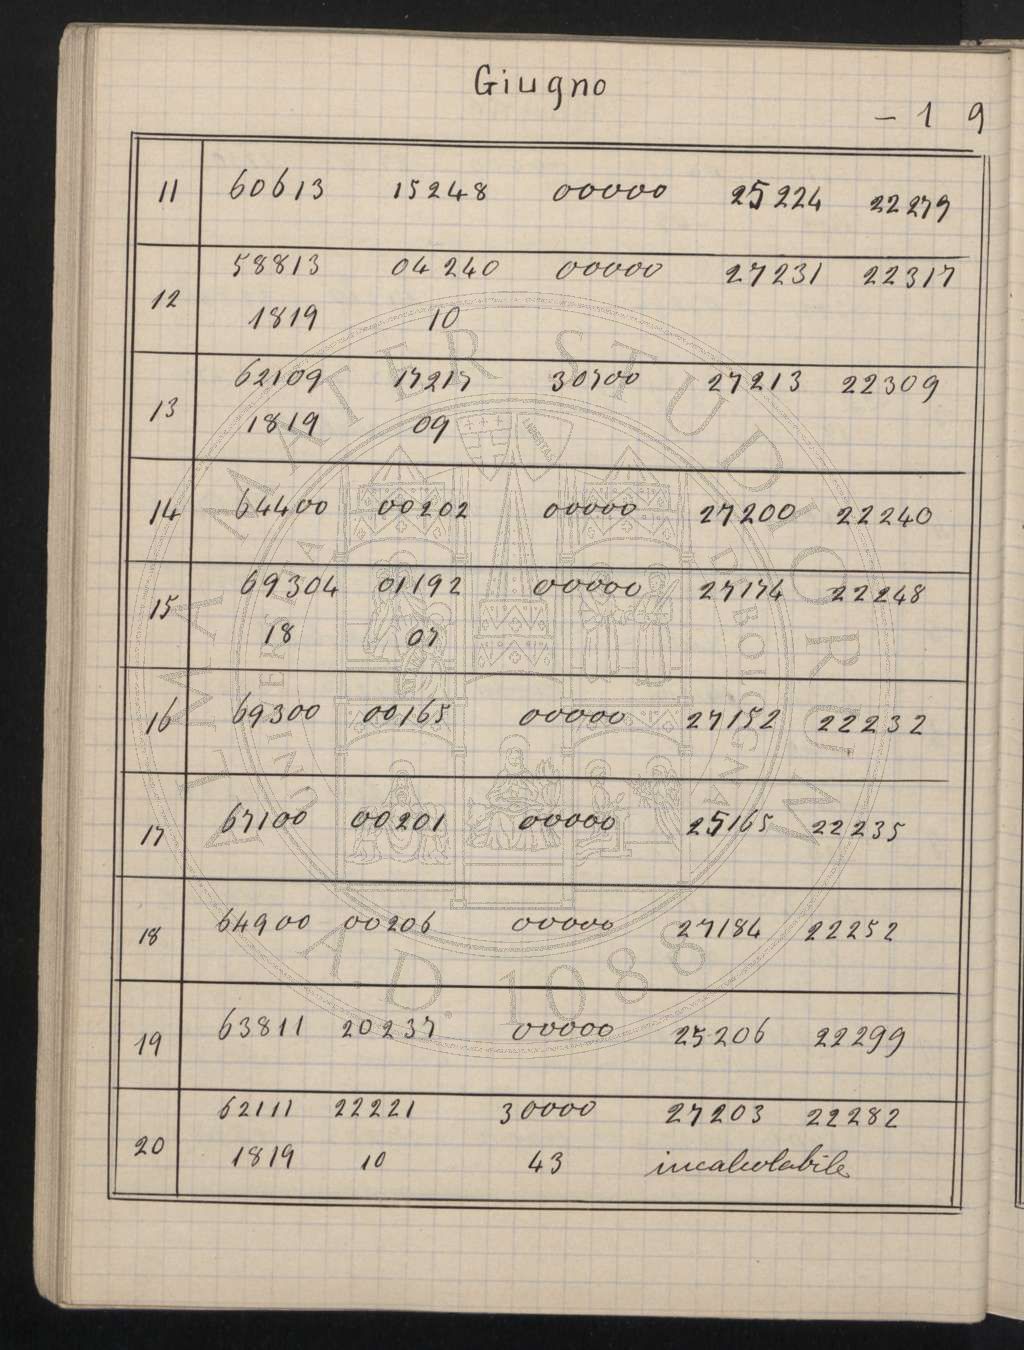 Giugno
- 1 9
11 60613 15248 00000 25224 22279
58813 04240 00000 27231 22317
12
1819 10
62109 17217 30700 27213 22309
13
1819 09
14 64400 00202 00000 27200 22240
69304 01192 00000 27174 22248
15
18 07
16 69300 00165 00000 27152 22232
17 67100 00201 00000 25165 22235
18 64900 00206 00000 27184 22252
19 63811 20237 00000 25206 22299
62111 22221 30000 27203 22282
20 1819 10 43 incalcolabile
ALMA MATER STUDIORUM
A.D. 1088